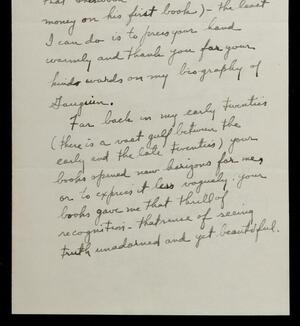 money on his first book) – the least
I can do is to press your hand
warmly and thank you for your
kind words on my biography of
Gauguin.
Far back in my early twenties
(there is a vast gulf between the
early and the late twenties) your
books opened new horizons for me,
or to express it less vaguely: your
books gave me that thrill of
recognition – that sense of seeing
truth unadorned and yet beautiful.